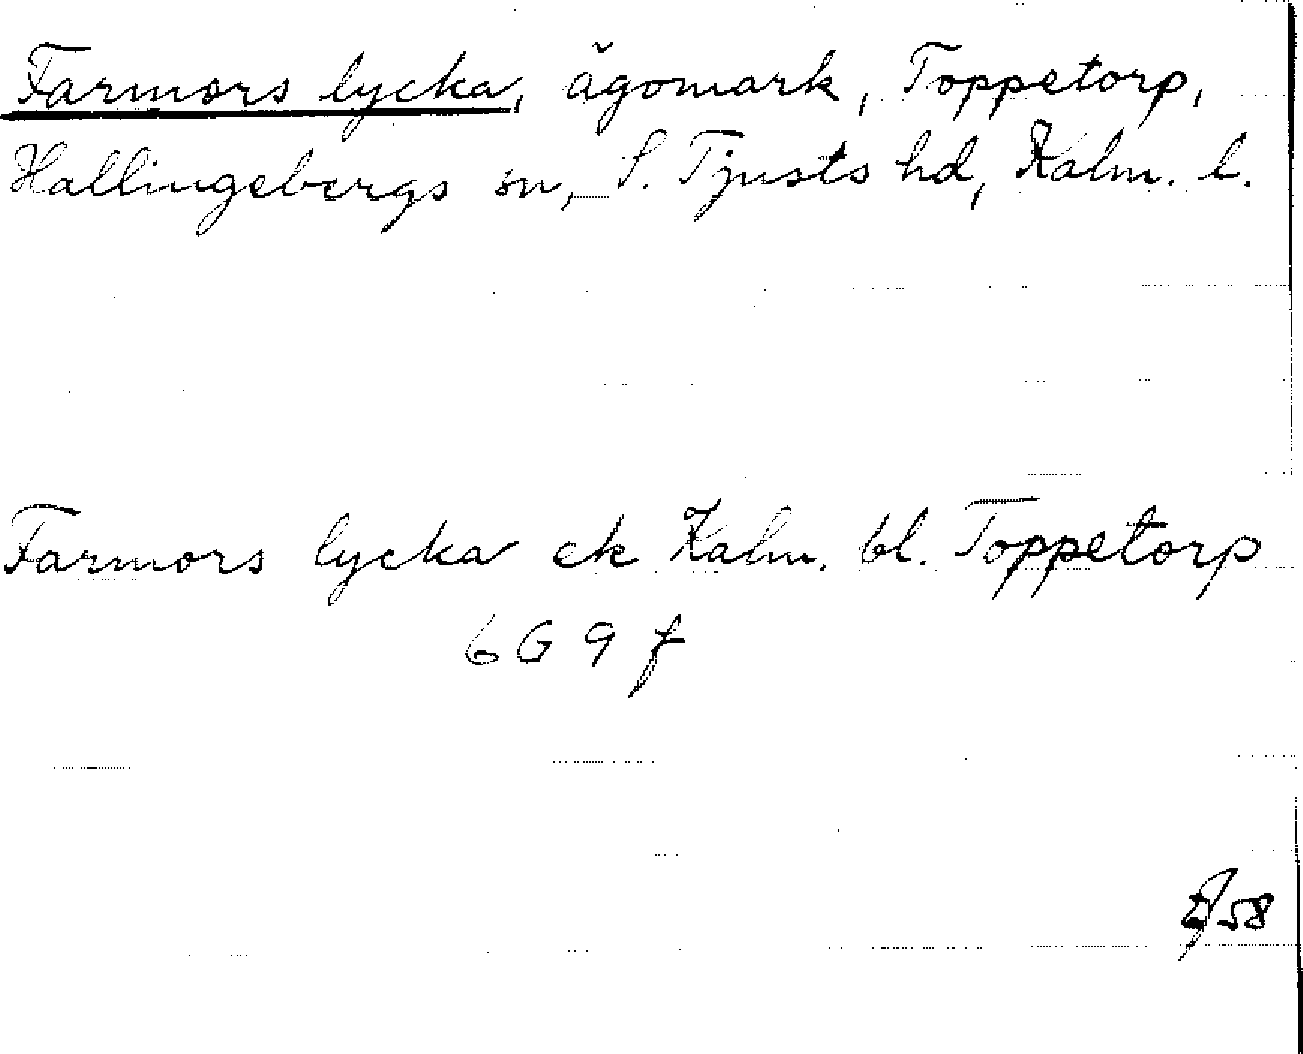 Farmors lycka, ägomark, Toppetorp,
Hallingebergs sn, S. Tjusts hd, Kalm. l.
Farmors lycka ek Kalm. bl. Toppetorp
6 G 9 f
58